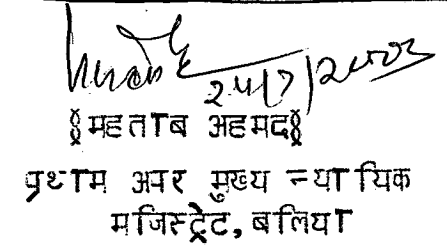 24/7/2003
§महताब अहमद§
प्रथम अपर मुख्य न्यायिक
मजिस्ट्रेट, बलिया